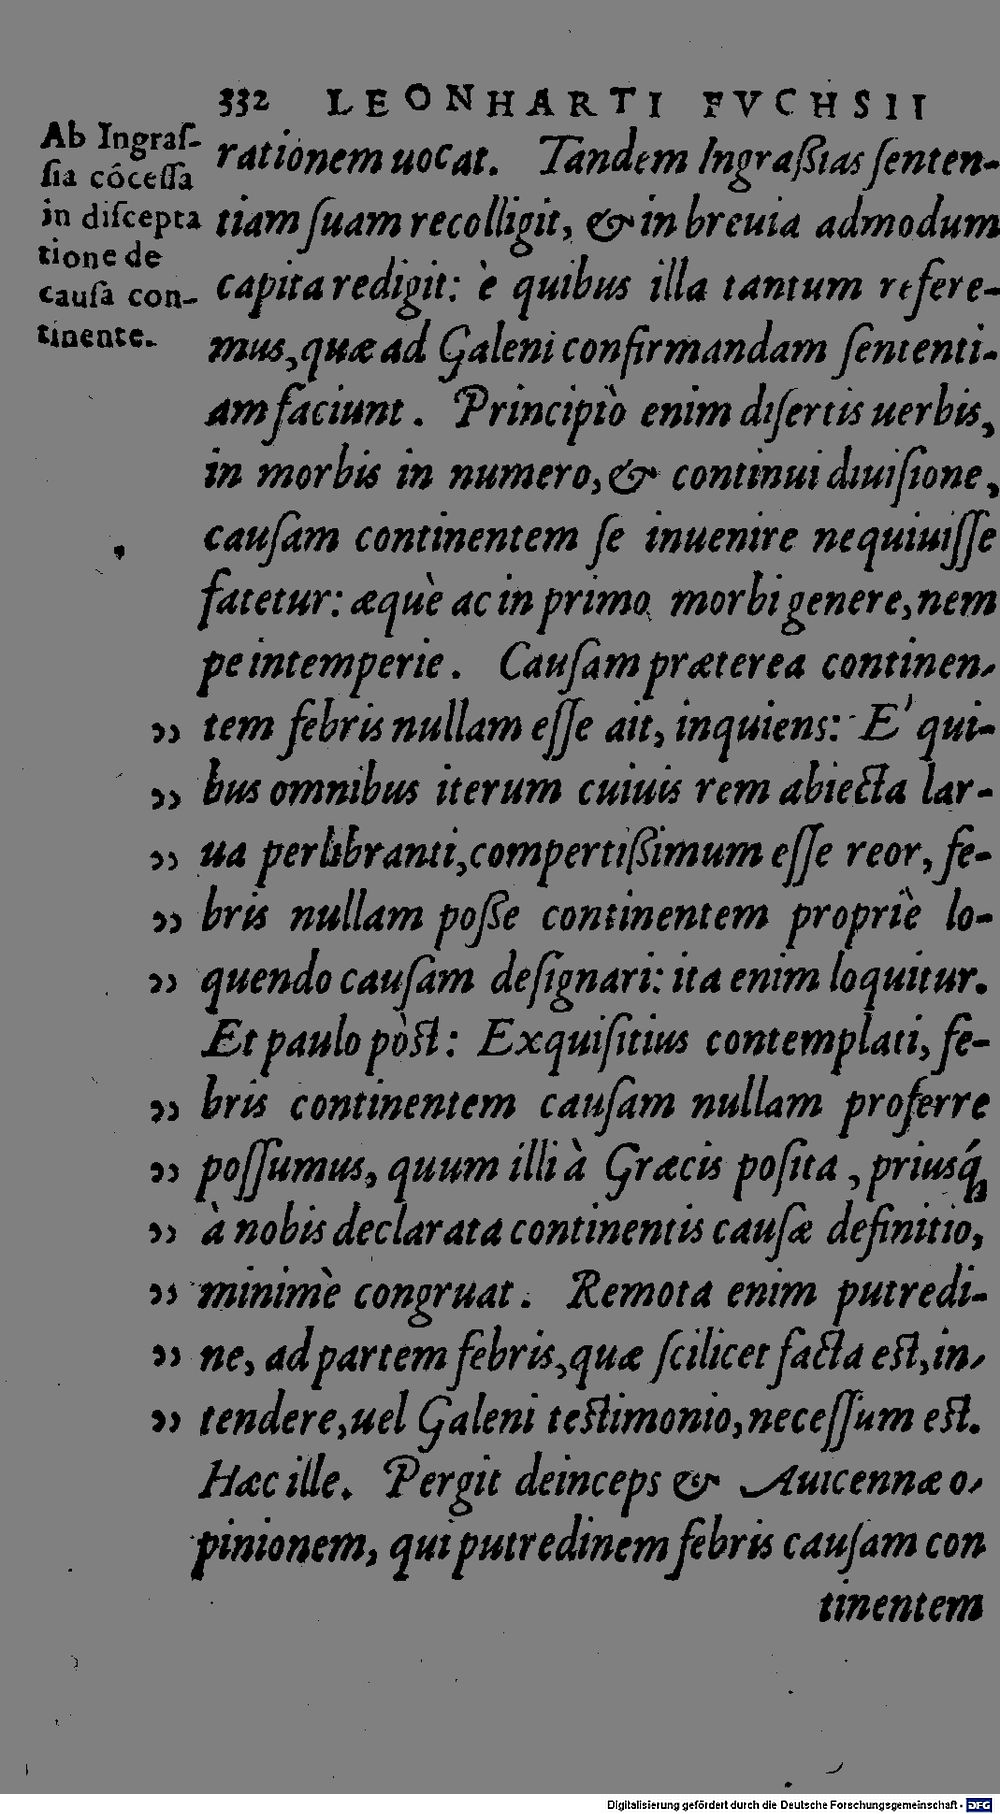 332 LEONHARTI FVCHSII
Ab Ingraſ-
ſia cóceſſa
in diſcepta
tione de
cauſa con-
tinente.
rationem uocat. Tandem Ingraßias ſenten-
tiam ſuam recolligit, & in breuia admodum
capita redigit: è quibus illa tantum refere-
mus, quæ ad Galeni confirmandam ſententi-
am faciunt. Principiò enim diſertis uerbis,
in morbis in numero, & continui diuiſione,
cauſam continentem ſe inuenire nequiuiſſe
fatetur: æquè ac in primo morbi genere, nem
pe intemperie. Cauſam præterea continen-
„ tem febris nullam eſſe ait, inquiens: E' qui-
„ bus omnibus iterum cuiuis rem abiecta lar-
„ ua perlibranti, compertißimum eſſe reor, fe-
„ bris nullam poße continentem propriè lo-
„ quendo cauſam deſignari: ita enim loquitur.
Et paulo pòst: Exquiſitius contemplati, fe-
„ bris continentem cauſam nullam proferre
„ poſſumus, quum illi à Græcis poſita, priusq́;
„ à nobis declarata continentis cauſæ definitio,
„ minimè congruat. Remota enim putredi-
„ ne, ad partem febris, quæ ſcilicet facta est, in-
„ tendere, uel Galeni testimonio, neceſſum est.
Hæc ille. Pergit deinceps & Auicennæ o-
pinionem, qui putredinem febris cauſam con
tinentem
Digitalisierung gefördert durch die Deutsche Forschungsgemeinschaft - DFG